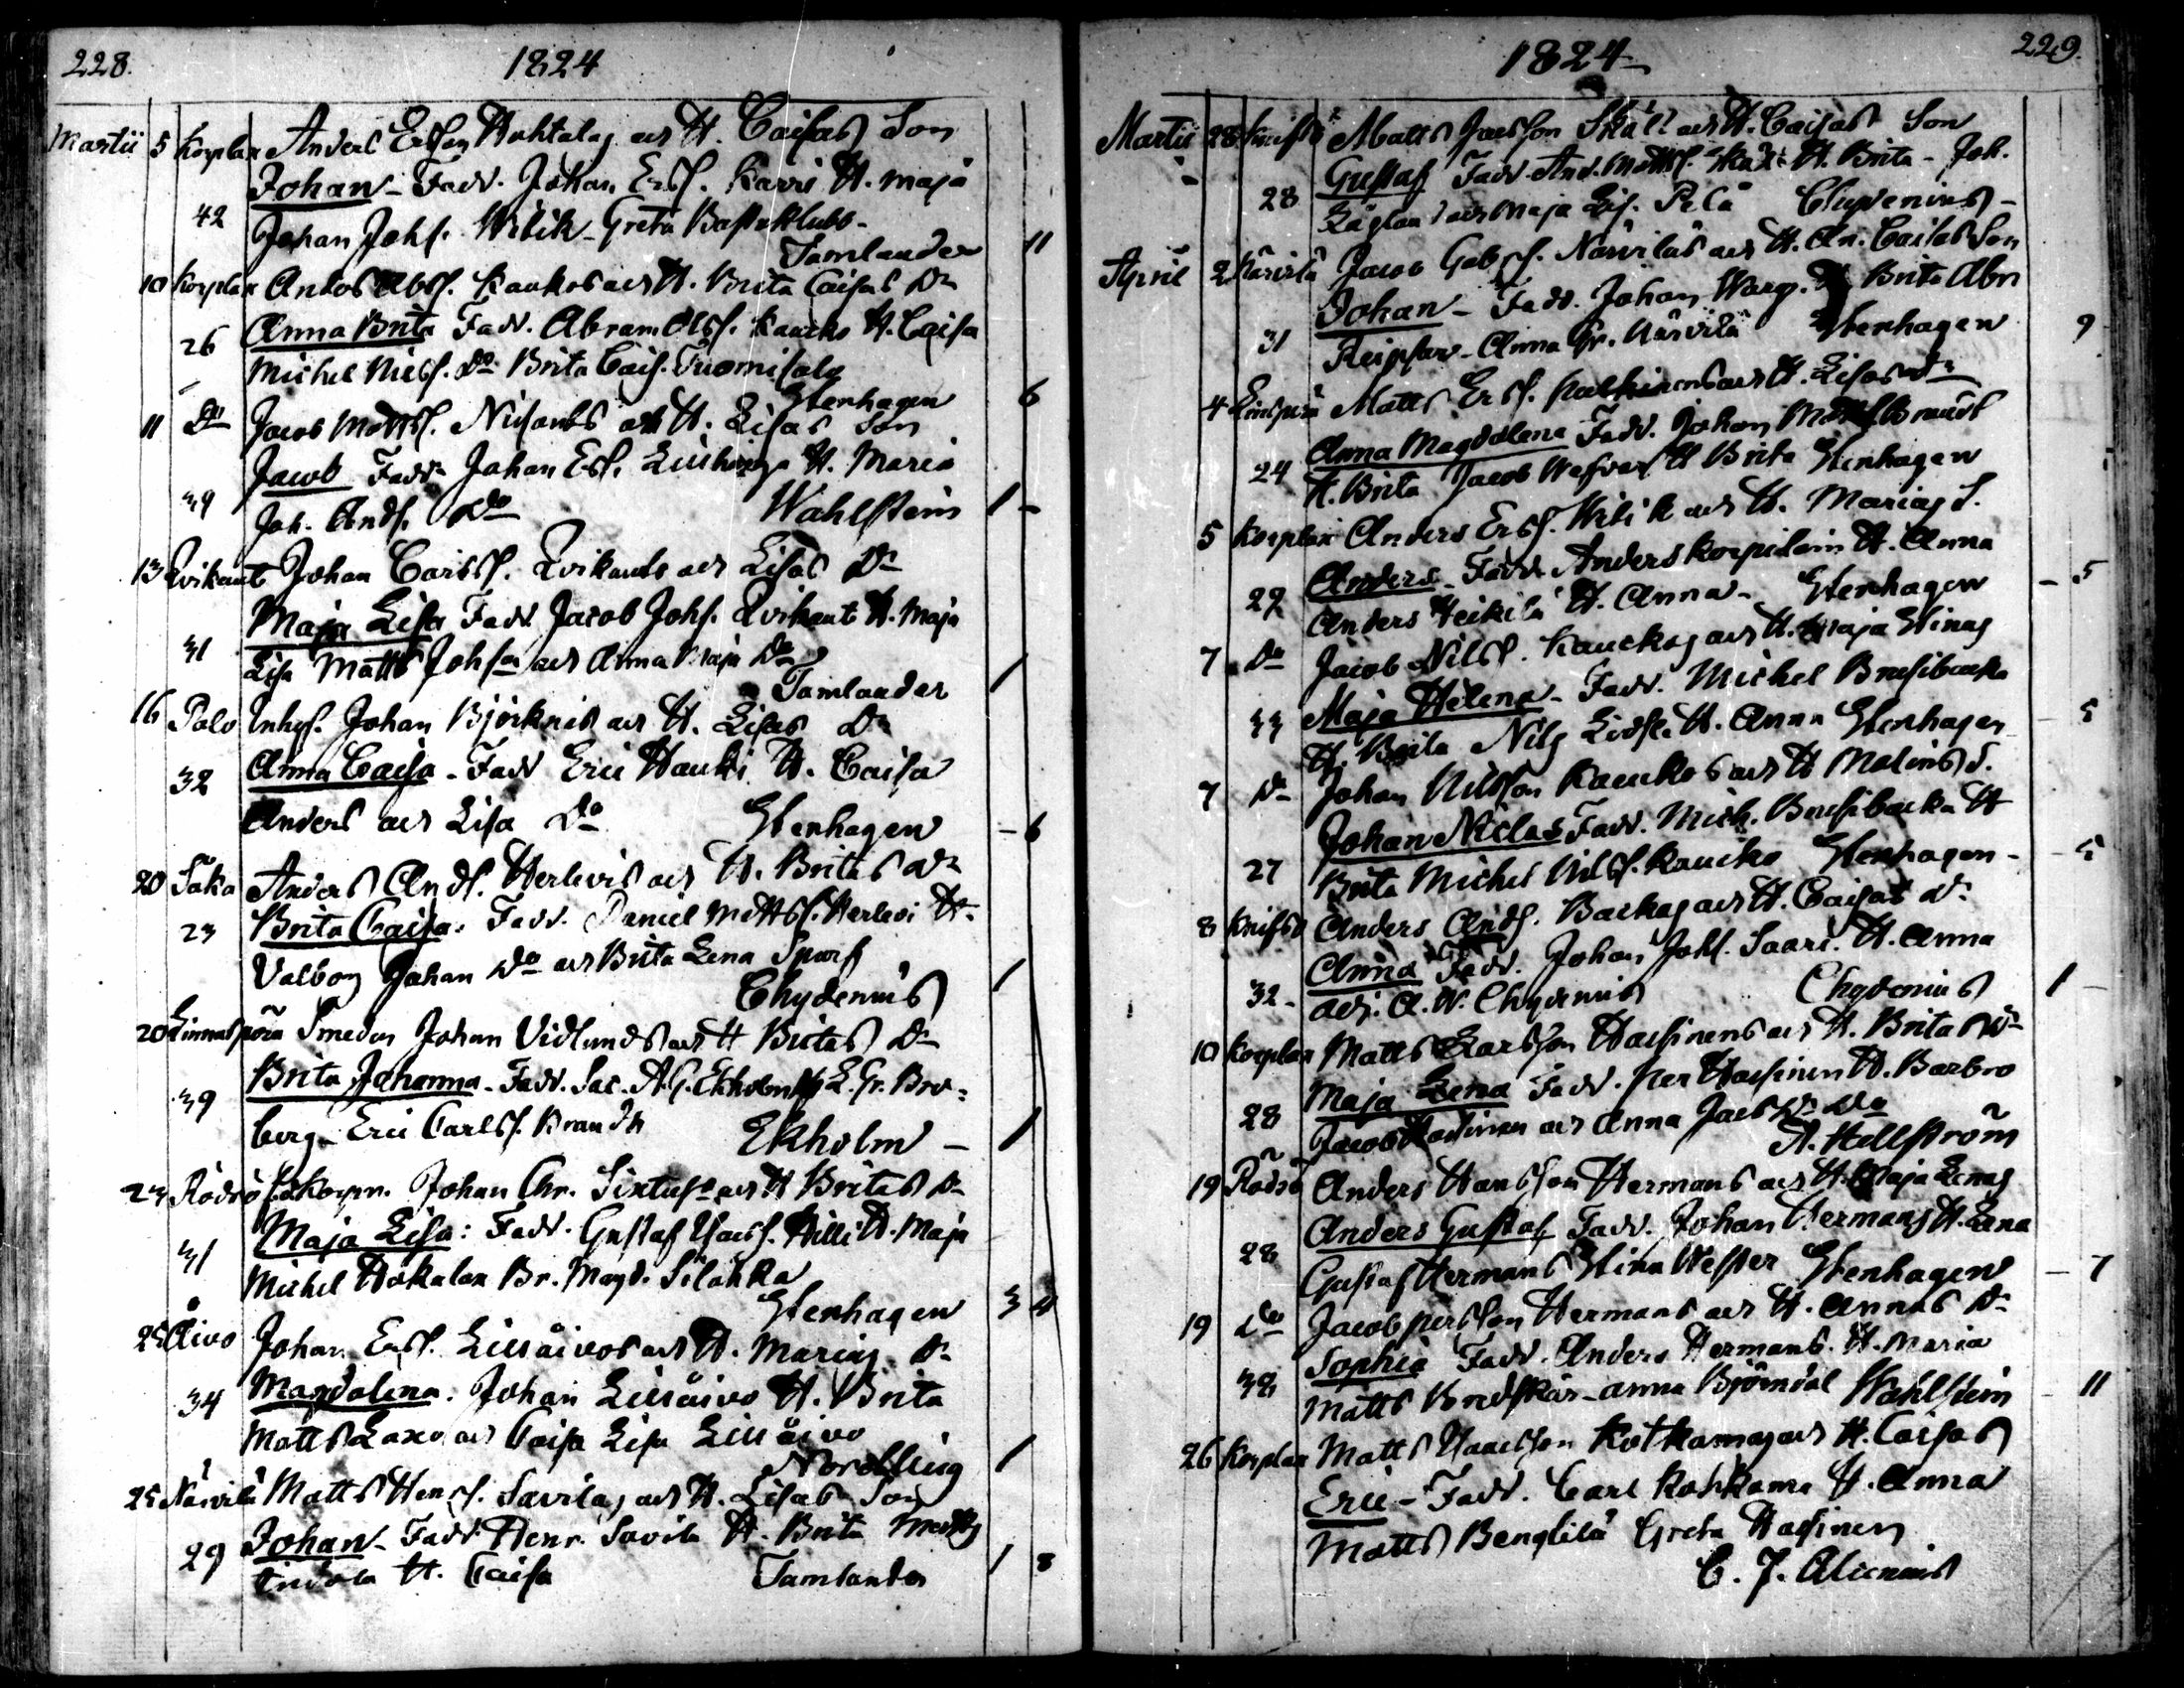 228.
1824
Martii 5 Korplax Anders Ersson Huhtalas och H. Caisas Son
Johan - Fadd. Johan Ersf. Karri H. Maja
42 Johan Johs. Wibik - Greta Bastuklubb -
Tamlander 11
10 Korplax Anders Absf. Kaukos och H. Brita Caisas Dr
26 Anna Brita Fadd. Abram Olsf. Kaucko H. Caisa
Michel Nielsf. Do Brita Cais. Tuomisalo
Stenhagen 6
11 Do Jacob Mattsf. Nisonbs och H. Lisas Son
Jacob Fadd. Johan Ersf. H. Maria
39 Joh. Andf. Do Wahlstein 1 -
13 Qvikant Johan Carlsf. Qvikants och Lisas Dr
Maja Lisa Fadd. Jacob Johs. Qvikant H. Maja
31 Lisa Matts Johson och Anna Maja Do
Tamlander 1
16 Palo Inhys. Johan Björknis och H. Lisas Dr
Anna Caisa - Fadd Eric Hauki H. Caisa
32 Anders och Lisa Do Stenhagen - 6
20 Såka Anders Andf. Herlevis och H. Britas Dr
23 Brita Caisa. Fadd. Daniel Mattsf. Herlevi H.
Valborg Johan Do och Brita Lena Sparf
Chydenius 1
20 Linnusperä Smeden Johan Vidlunds och H Britas Dr
Brita Johanna - Fadd. Sac. A. G. Ekholm L. Gr. Bro-
39 berg - Eric Carlsf. Brandt Ekholm - 1
23 Rödsö Sokopn. Johan Chr. Sixtus och H Britas Dr
Maja Lisa: Fadd. Gustaf Isacs. Hilli H. Maja
31 Michel Hakalax Br. Magd. Silahka
Stenhagen 3 4
25 Åivo Johan Ersf. Lillåivos och H. Marias Dr
34 Magdalena. Johan Lillåivo H. Brita
Matts Laxo och Caisa Lisa Lillåivo
Nordling 1
25 Närvilä Matts Henrf. Savilas och H. Lisas Son
29 Johan - Fadd. Henr. Savila H. Brita Matts
Indola H. Caisa Tamlander 1 8
229.
1824
Martii 28 Knifsb Matts Jacsson Skäll och H. Caisas Son
Gustaf Fadd. And. Mattsf. H. Brita - Joh.
28 och Maja Lis. Pelå Chydenius -
April 2 Närvilä Jacob Gabrf. Närviläs och H. An. Caisas Son
Johan - Fadd. Johan Warg. H Brita Abr.
31 Anna Gr. Närvilä Stenhagen 9
4 Linnsperä Matts Ersf. och H. Lisas Dr
Anna Magdalena Fadd. Johan Brandt
24 H. Brita Jacob H Brita Stenhagen
5 Korplax Anders Ersf. Wibik och H. Marias S.
Anders - Fadd. Anders H. Anna
29 Anders Heikilä H. Anna - Stenhagen - 5
7 Do Jacob Nilsf. Kauckos och H. Maja Stinas
Maja Helena - Fadd. Michel Brusibacka
33 H. Brita Nils H. Anna Stenhagen - 5
7 Do Johan Nilsson Kauckos och H Malins S.
Johan Niclas Fadd. Mich. Brusibacka H
27 Brita Michel Nilsf. Kaucko Stenhagen - 5
8 Knifsb Anders Andf. Backas och H. Caisas Dr
Anna Fadd. Johan Johf. Saari. H. Anna
32 - Adj. A. W. Chydenius Chydenius 1 -
10 Korplax Matts Larsson Hassinens och H. Britas Dr
Maja Lena Fadd. Per Hassinen H. Barbro
28 Jacob Hassinen och Anna Jacs Dr Do
A. Hellström
19 Rödsö Anders Hansson Hermans och H. Maja Lenas
Anders Gustaf Fadd. Johan Hermans H. Lena
28 Gustaf Hermans Stina Wester Stenhagen - 7
19 Do Jacob Persson Hermans och H. Annas Dr
Sophia Fadd. Anders Hermans. H. Maria
38 Matts Bredskär - Anna Björndal Wahlstein - 11
26 Korplax Matts Isaacsson Kotkamas och H. Caisas
Eric - Fadd. Carl Kotkama H. Anna
Matts Bengtilä Greta Hassinen
C. J. Alcenius